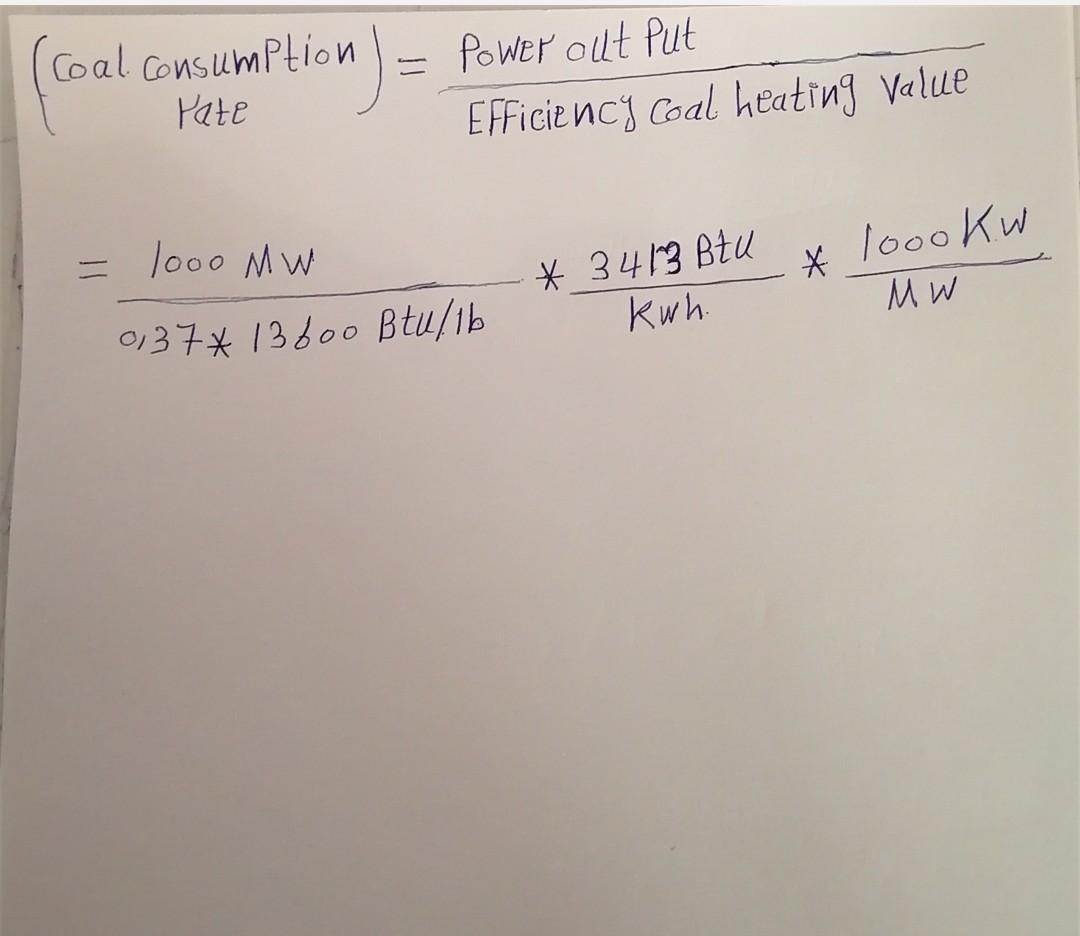 (Coal Consumption rate) = Power out Put / Efficiency Coal heating Value
= 1000 MW / 0,37 * 13600 Btu/lb * 3413 Btu / Kwh. * 1000 Kw / MW